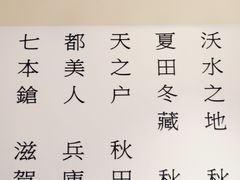 沃水之地 秋
夏田冬藏 秋
天之户 秋田
都美人 兵庫
七本鎗 滋賀